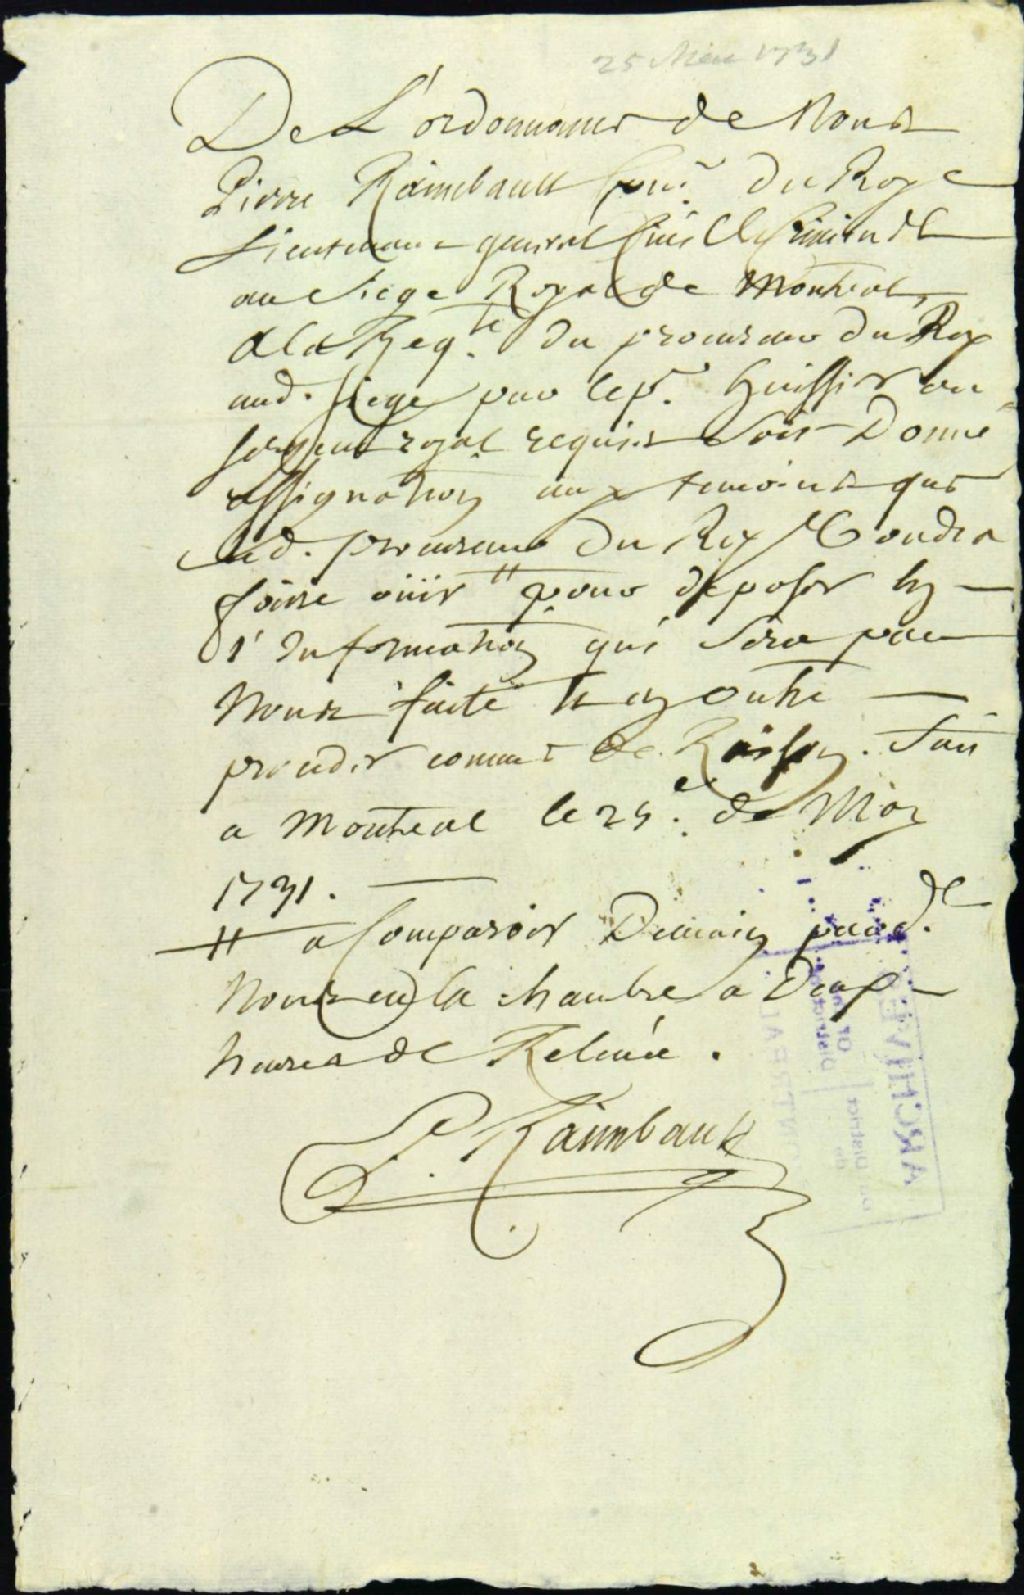 25 May 1731
De L'ordonnance de Nous
Pierre Raimbault Con.er du Roy
Lieutenant general Civil & Criminel
au siege Royal de Montreal,
A la Req.te du procureur du Roy
aud. siege par le p.r huissier ou
sergent royal requis soit Donné
assignation aux temoins que
led. procureur du Roy Voudra
faire oüir # pour deposer en
l'Information qui sera par
Nous faite et en outre
proceder comme de Raison. fait
a Montreal le 25.e de May
1731.
# a Comparoir Demain pard.
Nous en la chambre a Deux
heures de Relevée.
P. Raimbault
ARCHIVES
Du District
de
MONTREAL
District
Of